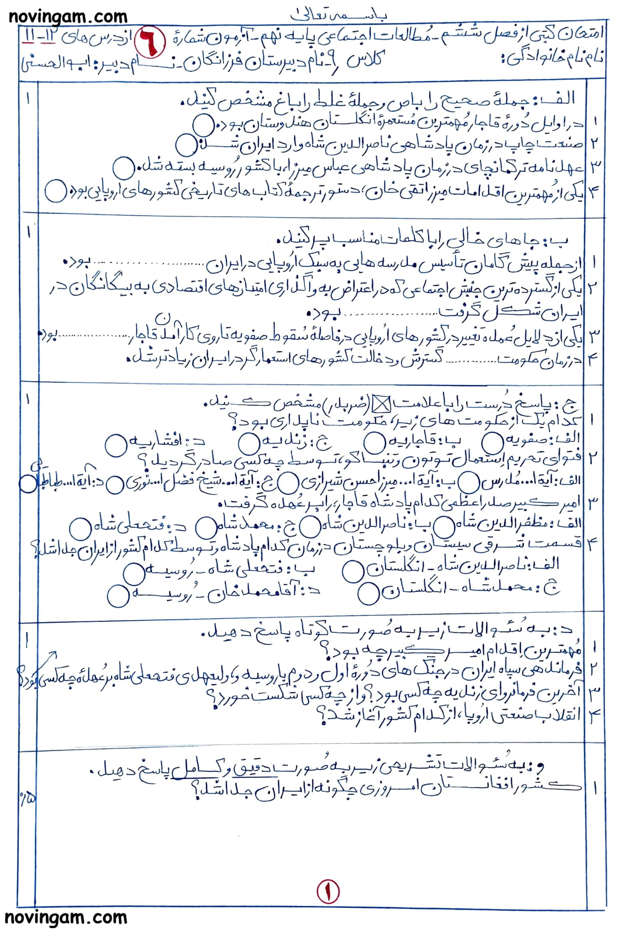 novingam.com
باسمه تعالی
امتحان کتبی از فصل ششم - مطالعات اجتماعی پایه نهم - آزمون شمارهٔ ۶ از درس های ۱۲-۱۱
نام نام خانوادگی: کلاس ۹ - نام دبیرستان فرزانگان - نام دبیر: ابوالحسنی
الف: جملهٔ صحیح را با ص و جملهٔ غلط را با غ مشخص کنید. ۱
۱ در اوایل دورهٔ قاجار مُهمترین مُستعمرهٔ انگلستان هندوستان بود.
۲ صنعت چاپ در زمان پادشاهی ناصرالدین شاه وارد ایران شد.
۳ عهدنامه ترکمانچای در زمان پادشاهی عباس میرزا، با کشور روسیه بسته شد.
۴ یکی از مُهمترین اقدامات میرزا تقی خان، دستور ترجمهٔ کتاب های تاریخی کشورهای اروپایی بود.
ب: جاهای خالی را با کلمات مناسب پر کنید. ۱
۱ از جمله پیش گامان تأسیس مدرسه هایی به سبک اروپایی در ایران .................... بود.
۲ یکی از گسترده ترین جنبش اجتماعی که در اعتراض به واگذاری امتیازهای اقتصادی به بیگانگان در
ایران شکل گرفت .................... بود.
۳ یکی از دلایل عمده تغییر در کشورهای اروپایی در فاصلهٔ سُقوط صفویه تا روی کار آمدن قاجار .................... بود.
۴ در زمان حکومت .................... گسترش و دخالت کشورهای استعمارگر در ایران زیادتر شد.
ج: پاسخ دُرست را با علامت ☒ (ضربدر) مشخص کنید. ۱
۱ کدام یک از حکومت های زیر، حکومت ناپایداری بود؟
الف: صفویه ب: قاجاریه ج: زندیه د: افشاریه
۲ فتوای تحریم استعمال توتون و تنباکو، توسط چه کسی صادر گردید؟
الف: آیة ا... مُدرس ب: آیة ا... میرزا حسن شیرازی ج: آیة ا... شیخ فضل ا... نوری د: آیة ا... طباطبایی
۳ امیرکبیر صدر اعظمی کدام پادشاه قاجار، را بر عُهده گرفت.
الف: مظفرالدین شاه ب: ناصرالدین شاه ج: محمدشاه د: فتحعلی شاه
۴ قسمت شرقی سیستان و بلوچستان در زمان کدام پادشاه و توسط کدام کشور از ایران جدا شد؟
الف: ناصرالدین شاه - انگلستان ب: فتحعلی شاه - روسیه
ج: محمدشاه - انگلستان د: آقامحمدخان - رُوسیه
د: به سُئوالات زیر به صُورت کوتاه پاسخ دهید. ۱
۱ مُهمترین اقدام امیرکبیر چه بود؟
۲ فرماندهی سپاه ایران در جنگ های دورهٔ اول و دوم با روسیه و، ولیعهدی فتحعلی شاه بر عُهدهٔ چه کسی بود؟
۳ آخرین فرمانروای زندیه چه کسی بود؟ و از چه کسی شکست خورد؟
۴ انقلاب صنعتی اروپا، از کدام کشور آغاز شد؟
و: به سُئوالات تشریحی زیر به صُورت دقیق و کامل پاسخ دهید.
۱ کشور افغانستان امروزی چگونه از ایران جدا شد؟
۱
novingam.com